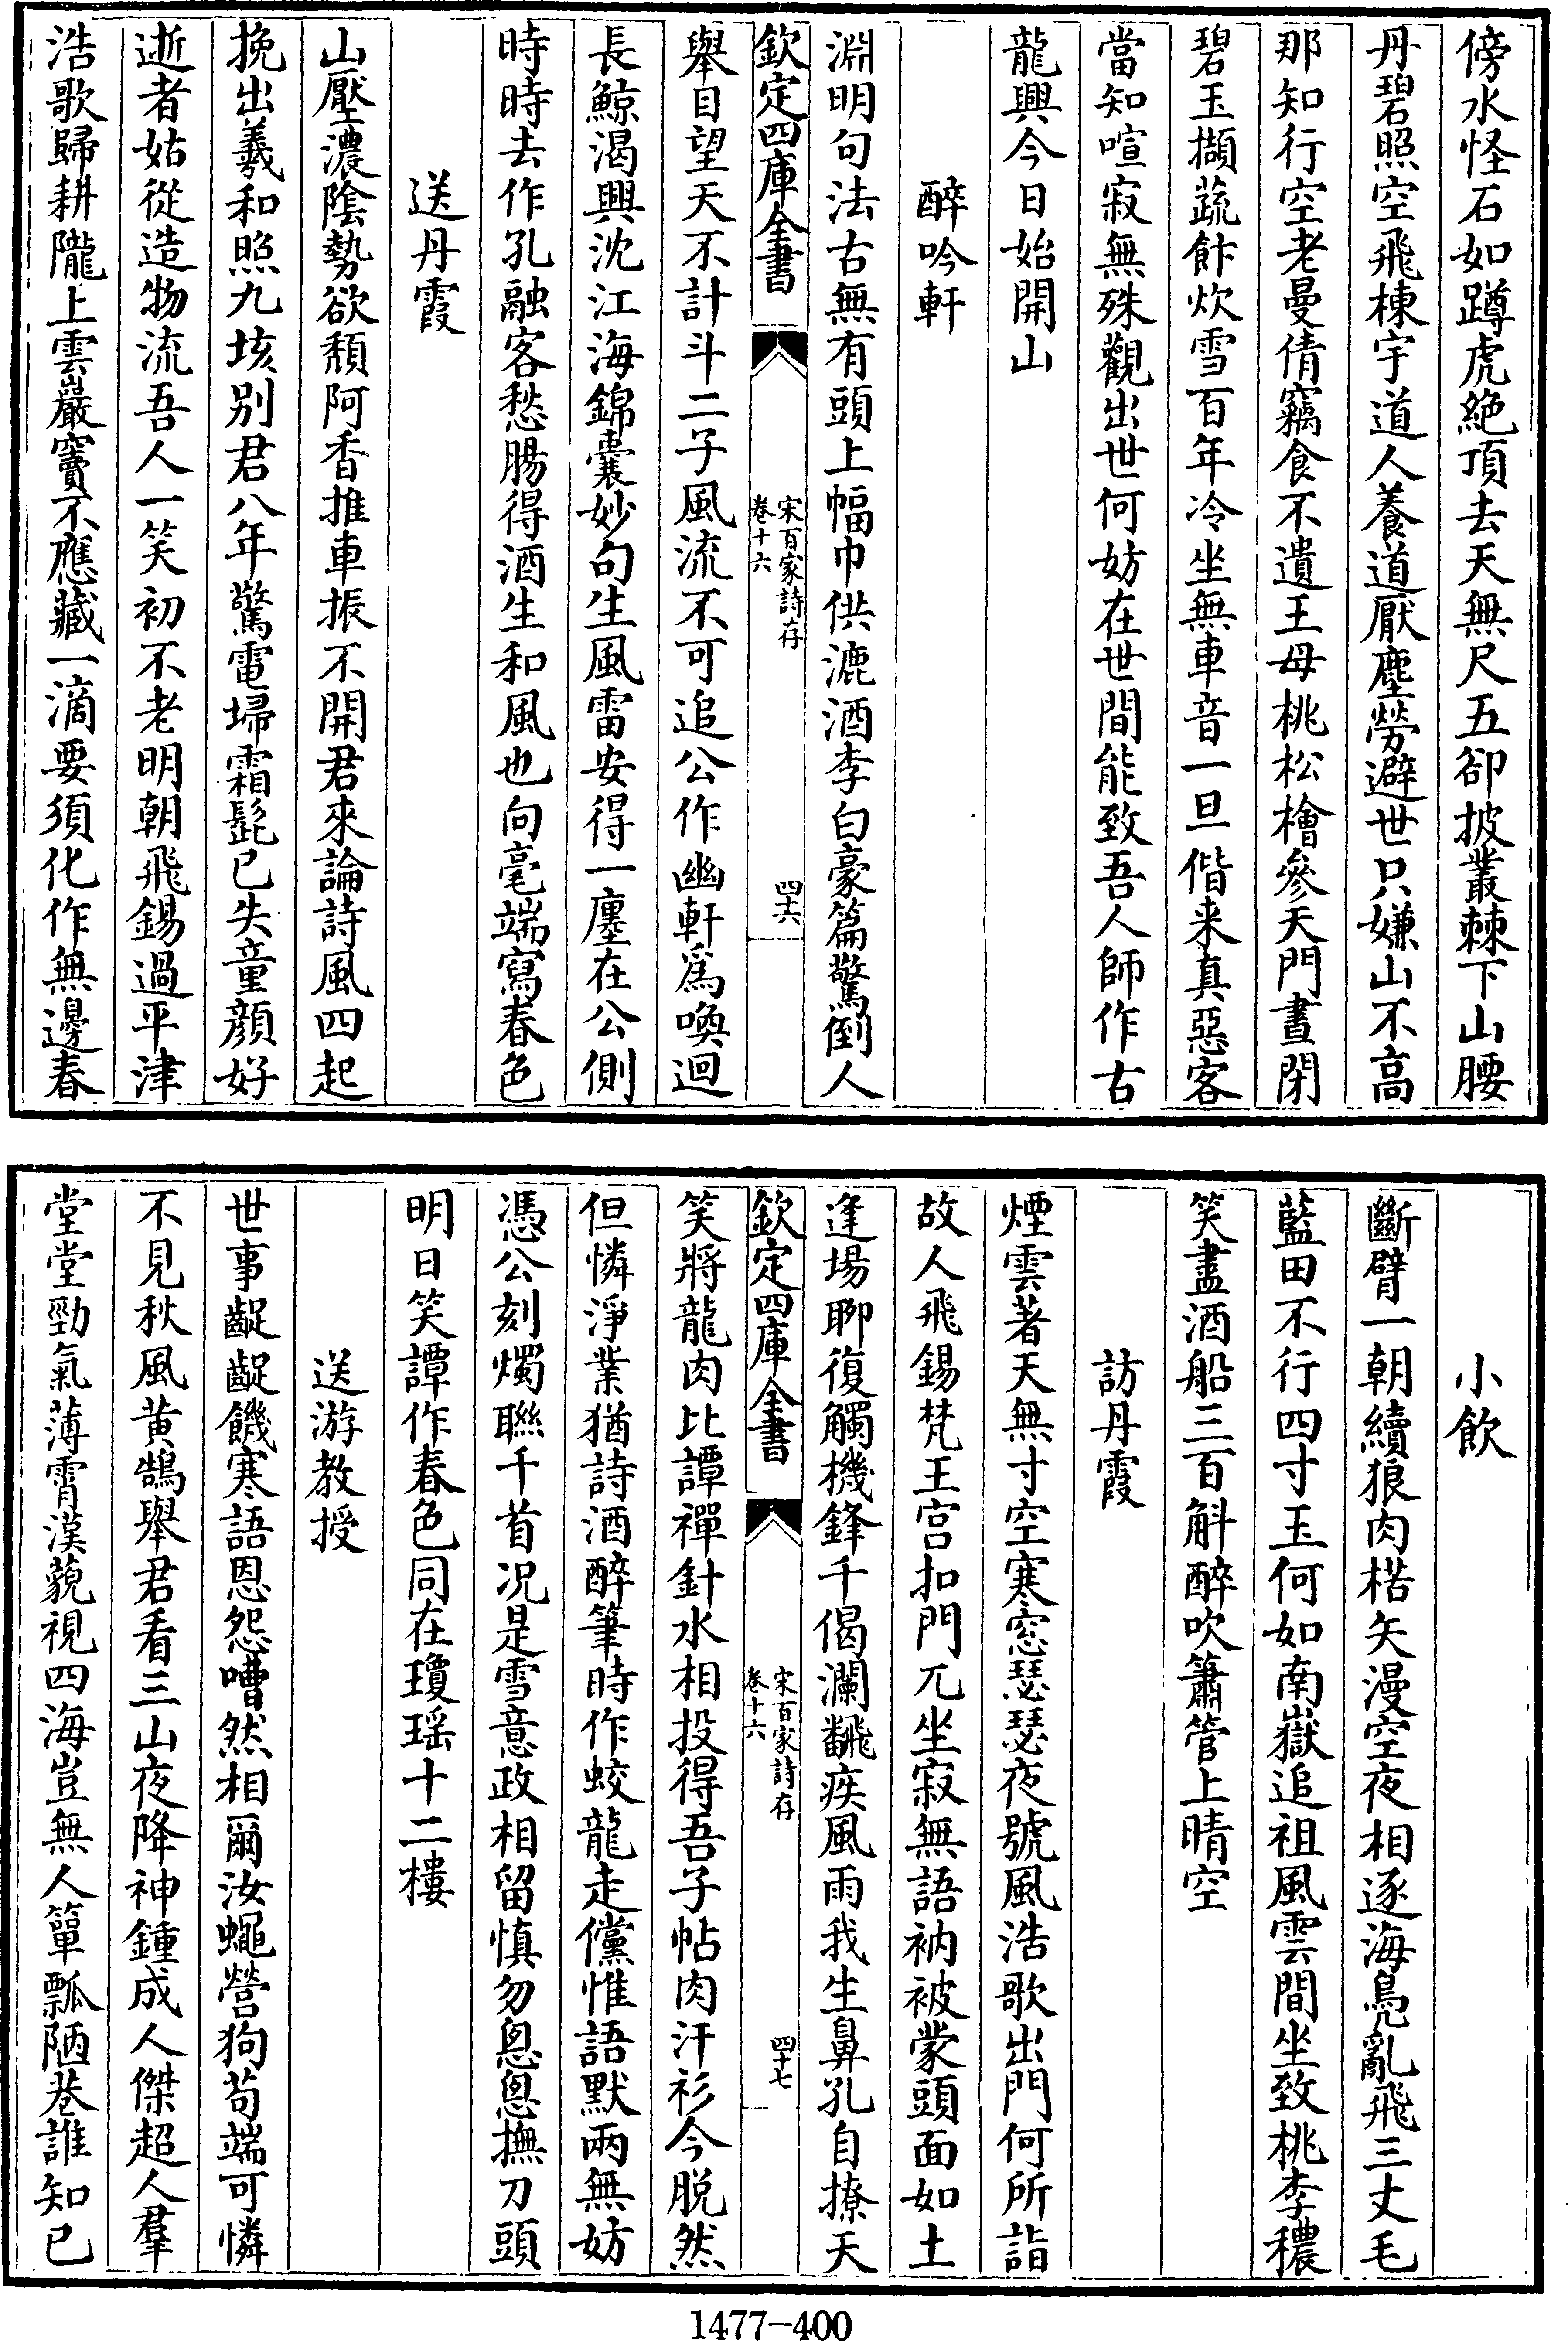 傍水怪石如蹲虎絶頂去天無尺五卻披叢棘下山腰
丹碧照空飛棟宇道人養道厭塵勞避世只嫌山不高
那知行空老曼倩竊食不遺王母桃松檜參天門晝閉
碧玉擷蔬飰炊雪百年冷坐無車音一旦偕来真惡客
當知喧寂無殊觀出世何妨在世間能致吾人師作古
龍興今日始開山
醉吟軒
淵明句法古無有頭上幅巾供漉酒李白豪篇驚倒人
欽定四庫全書
宋百家詩存
卷十六
四十六
舉目望天不計斗二子風流不可追公作幽軒為喚迴
長鯨渴興沈江海錦囊妙句生風雷安得一廛在公側
時時去作孔融客愁腸得酒生和風也向毫端寫春色
送丹霞
山壓濃陰勢欲頹阿香推車振不開君來論詩風四起
挽出羲和照九垓别君八年驚電埽霜髭已失童顔好
逝者姑從造物流吾人一笑初不老明朝飛錫過平津
浩歌歸耕隴上雲巖竇不應藏一滴要須化作無邊春
小飲
斷臂一朝續狼肉楛矢漫空夜相逐海鳧亂飛三丈毛
藍田不行四寸玉何如南嶽追祖風雲間坐致桃李穠
笑盡酒船三百斛醉吹簫管上晴空
訪丹霞
煙雲著天無寸空寒窓瑟瑟夜號風浩歌出門何所詣
故人飛錫梵王宮扣門兀坐寂無語衲被蒙頭面如土
逢場聊復觸機鋒千偈瀾飜疾風雨我生鼻孔自撩天
欽定四庫全書
宋百家詩存
卷十六
四十七
笑將龍肉比譚禪針水相投得吾子帖肉汗衫今脱然
但憐淨業猶詩酒醉筆時作蛟龍走儻惟語默兩無妨
憑公刻燭聯千首况是雪意政相留慎勿怱怱撫刀頭
明日笑譚作春色同在瓊瑶十二樓
送游教授
世事齪齪饑寒語恩怨嘈然相爾汝蠅營狗苟端可憐
不見秋風黄鵠舉君看三山夜降神鍾成人傑超人羣
堂堂勁氣薄霄漢藐視四海豈無人簞瓢陋巷誰知已
1477-400